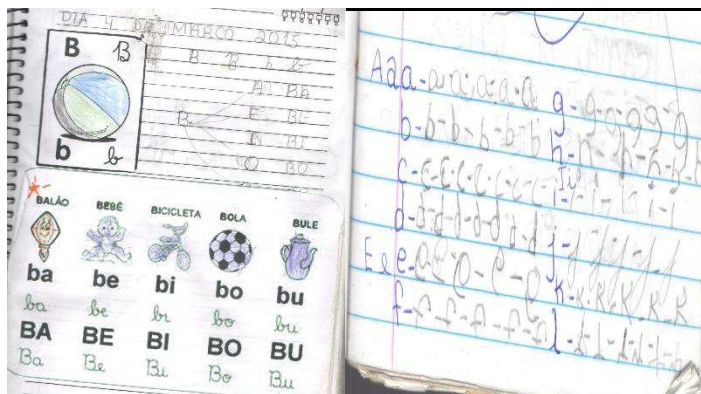 DIA 4 DA MARCO 2015
B B
B B b b
A BA
E BE
B I BI
O BO
b b
BALÃO BEBÊ BICICLETA BOLA BULE
ba be bi bo bu
ba be bi bo bu
BA BE BI BO BU
Ba Be Bi Bo Bu
A a a - a - a - a - a - a
b - b - b - b - b - b
c - c - c - c - c - c - c
d - d - d - d - d - d
E e e - e - e - e - e
f - f - f - f - f - f
g - g - g - g - g
h - h - h - h - h
i - i - i - i - i
j - j - j - j - j
k - k - k - k - k
l - l - l - l - l - l